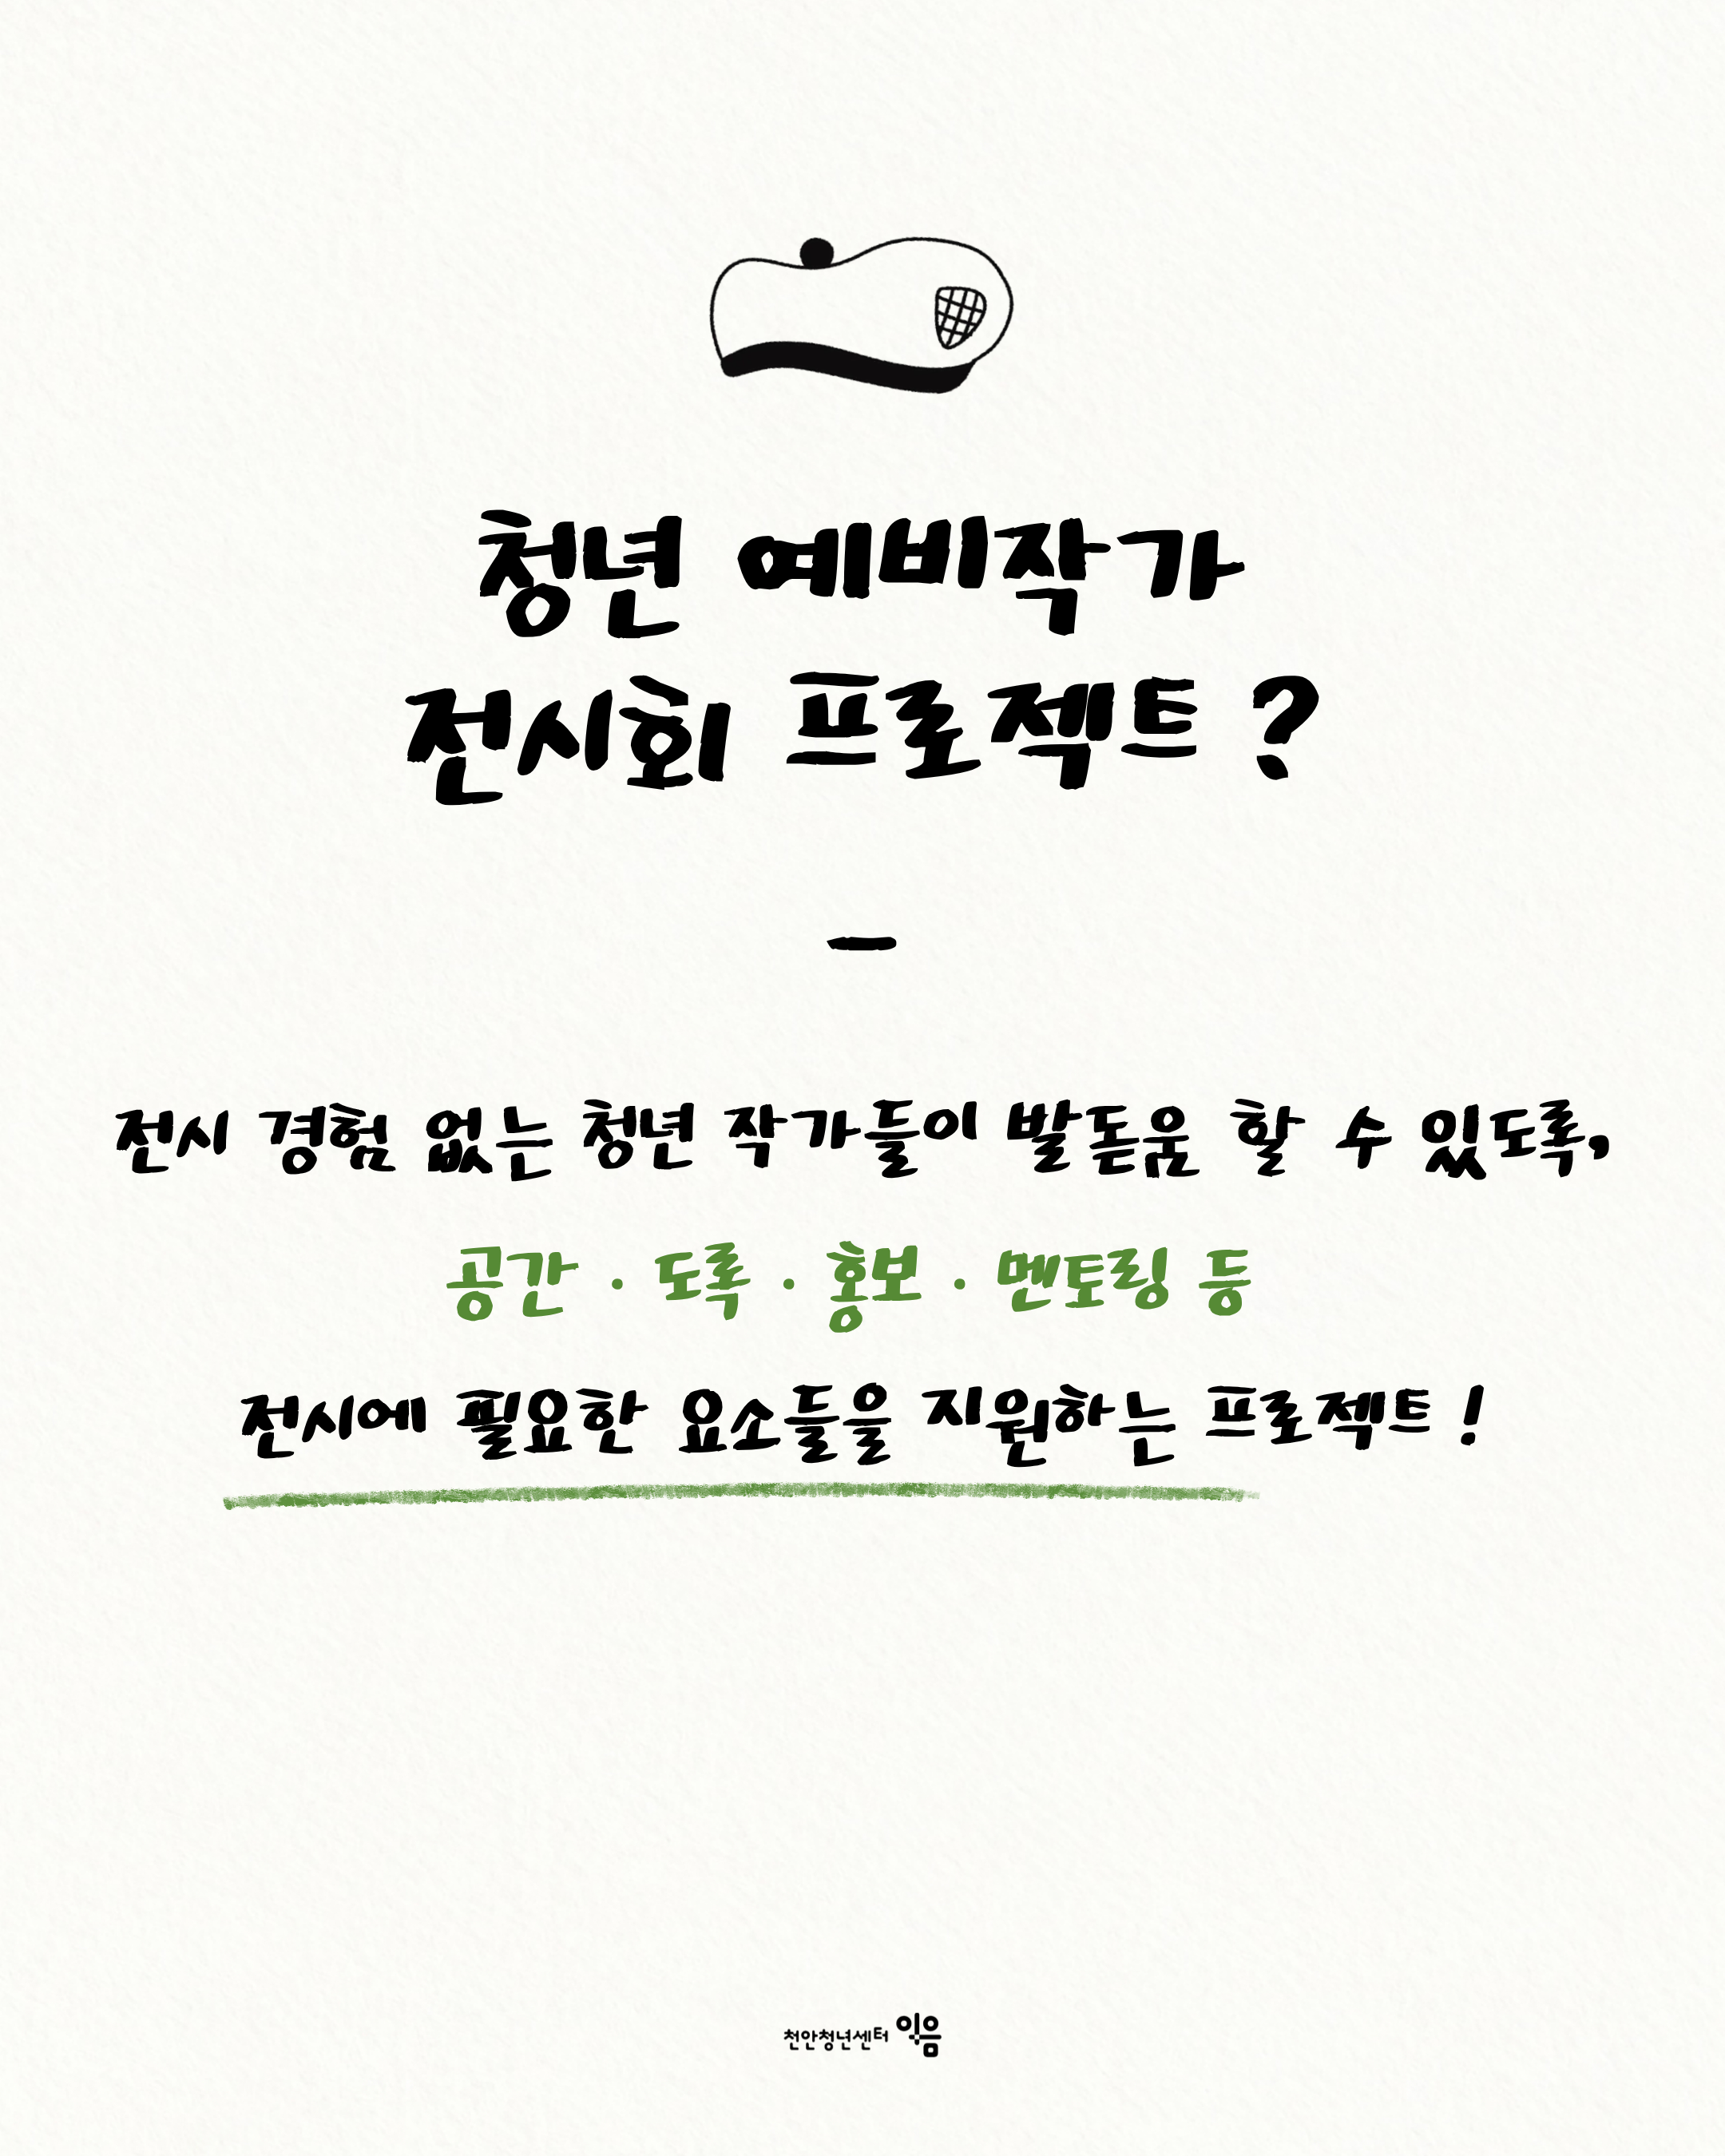 청년 예비작가
전시회 프로젝트 ?
–
전시 경험 없는 청년 작가들이 발돋움 할 수 있도록,
공간 · 도록 · 홍보 · 멘토링 등
전시에 필요한 요소들을 지원하는 프로젝트 !
천안청년센터 이음